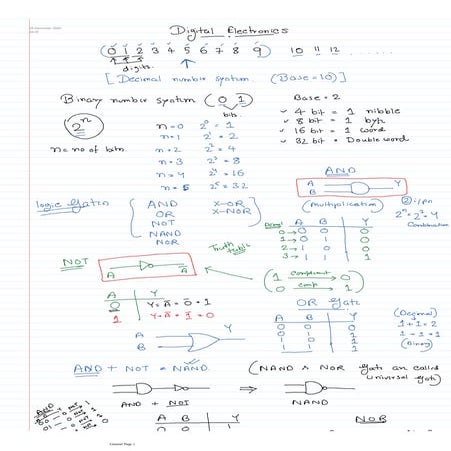 Digital Electronics
(0 1 2 3 4 5 6 7 8 9) 10 11 12 .....
digits.
[Decimal number system. (Base=10)]
Binary number system (0 1) Base = 2
bits.
2^n
n = no of bits.
n=0 2^0 = 1
n=1 2^1 = 2
n=2 2^2 = 4
n=3 2^3 = 8
n=4 2^4 = 16
n=5 2^5 = 32
✓ 4 bit = 1 nibble
✓ 8 bit = 1 byte
✓ 16 bit = 1 word
✓ 32 bit = Double word
AND
A B Y
(Multiplication)
② i/p
2^n = 2^2 = 4
Combination
logic Gates
AND X-OR
OR X-NOR
NOT
NAND
NOR
Truth table
A B Y
0→ 0 0 0
1→ 0 1 0
2→ 1 0 0
3→ 1 1 1
NOT
A Ā
(1 complement → 0
0 comp → 1)
A Y
0 Y=Ā=0̄=1
1 Y=Ā=1̄=0
A B Y
OR Gate
A B Y
0 0 0
0 1 1
1 0 1
1 1 1
(Decimal)
1+1=2
1+1=1
(Binary)
AND + NOT = NAND.
(NAND & NOR Gate are called universal Gate)
AND + NOT
NAND
A B Y
0 0 1
NOR
AND NOT